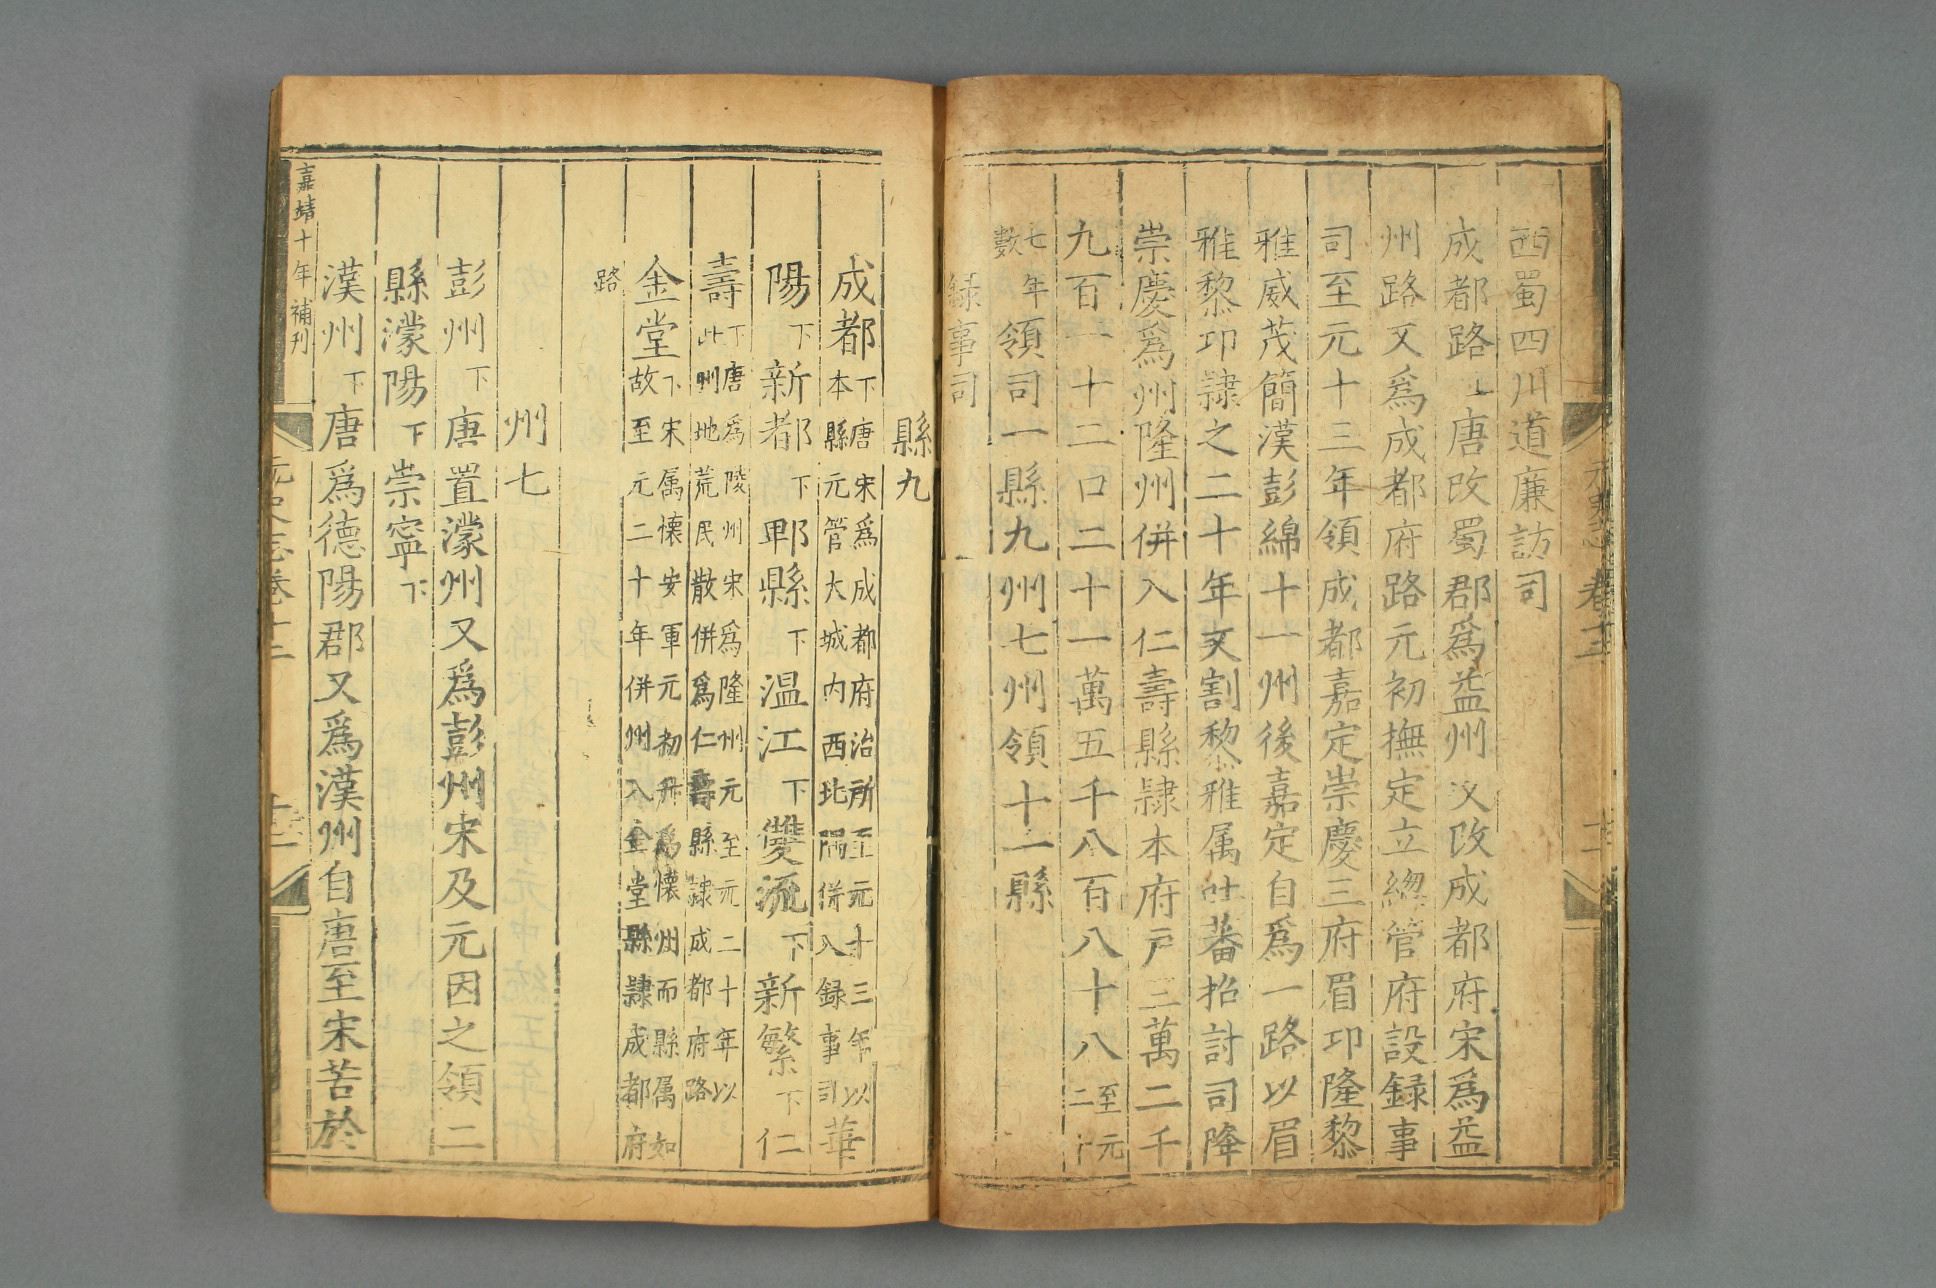 西蜀四川道廉訪司
成都路上唐改蜀郡爲益州又改成都府宋爲益
州路又爲成都府路元初撫定立緫管府設録事
司至元十三年領成都嘉定崇慶三府眉邛隆黎
雅威茂簡漢彭綿十一州後嘉定自爲一路以眉
雅黎邛隷之二十年又割黎雅属吐蕃招討司降
崇慶爲州隆州併入仁壽縣隷本府戶三萬二千
九百一十二口二十一萬五千八百八十八至元二十
七年數領司一縣九州七州領十一縣
録事司
縣九
成都下唐宋爲成都府治所至元十三年以本縣元管大城内西北隅併入録事司華
陽下新都下郫縣下温江下雙流下新繁下仁
壽下唐爲陵州宋爲隆州元至元二十年以此州地荒民散併爲仁壽縣隷成都府路
金堂下宋属懷安軍元初升爲懷州而縣属如故至元二十年併州入金堂縣隷成都府
路
州七
彭州下唐置濛州又爲彭州宋及元因之領二
縣濛陽下崇寧下
漢州下唐爲德陽郡又爲漢州自唐至宋苦於
嘉靖十年補刊
元史志卷十二